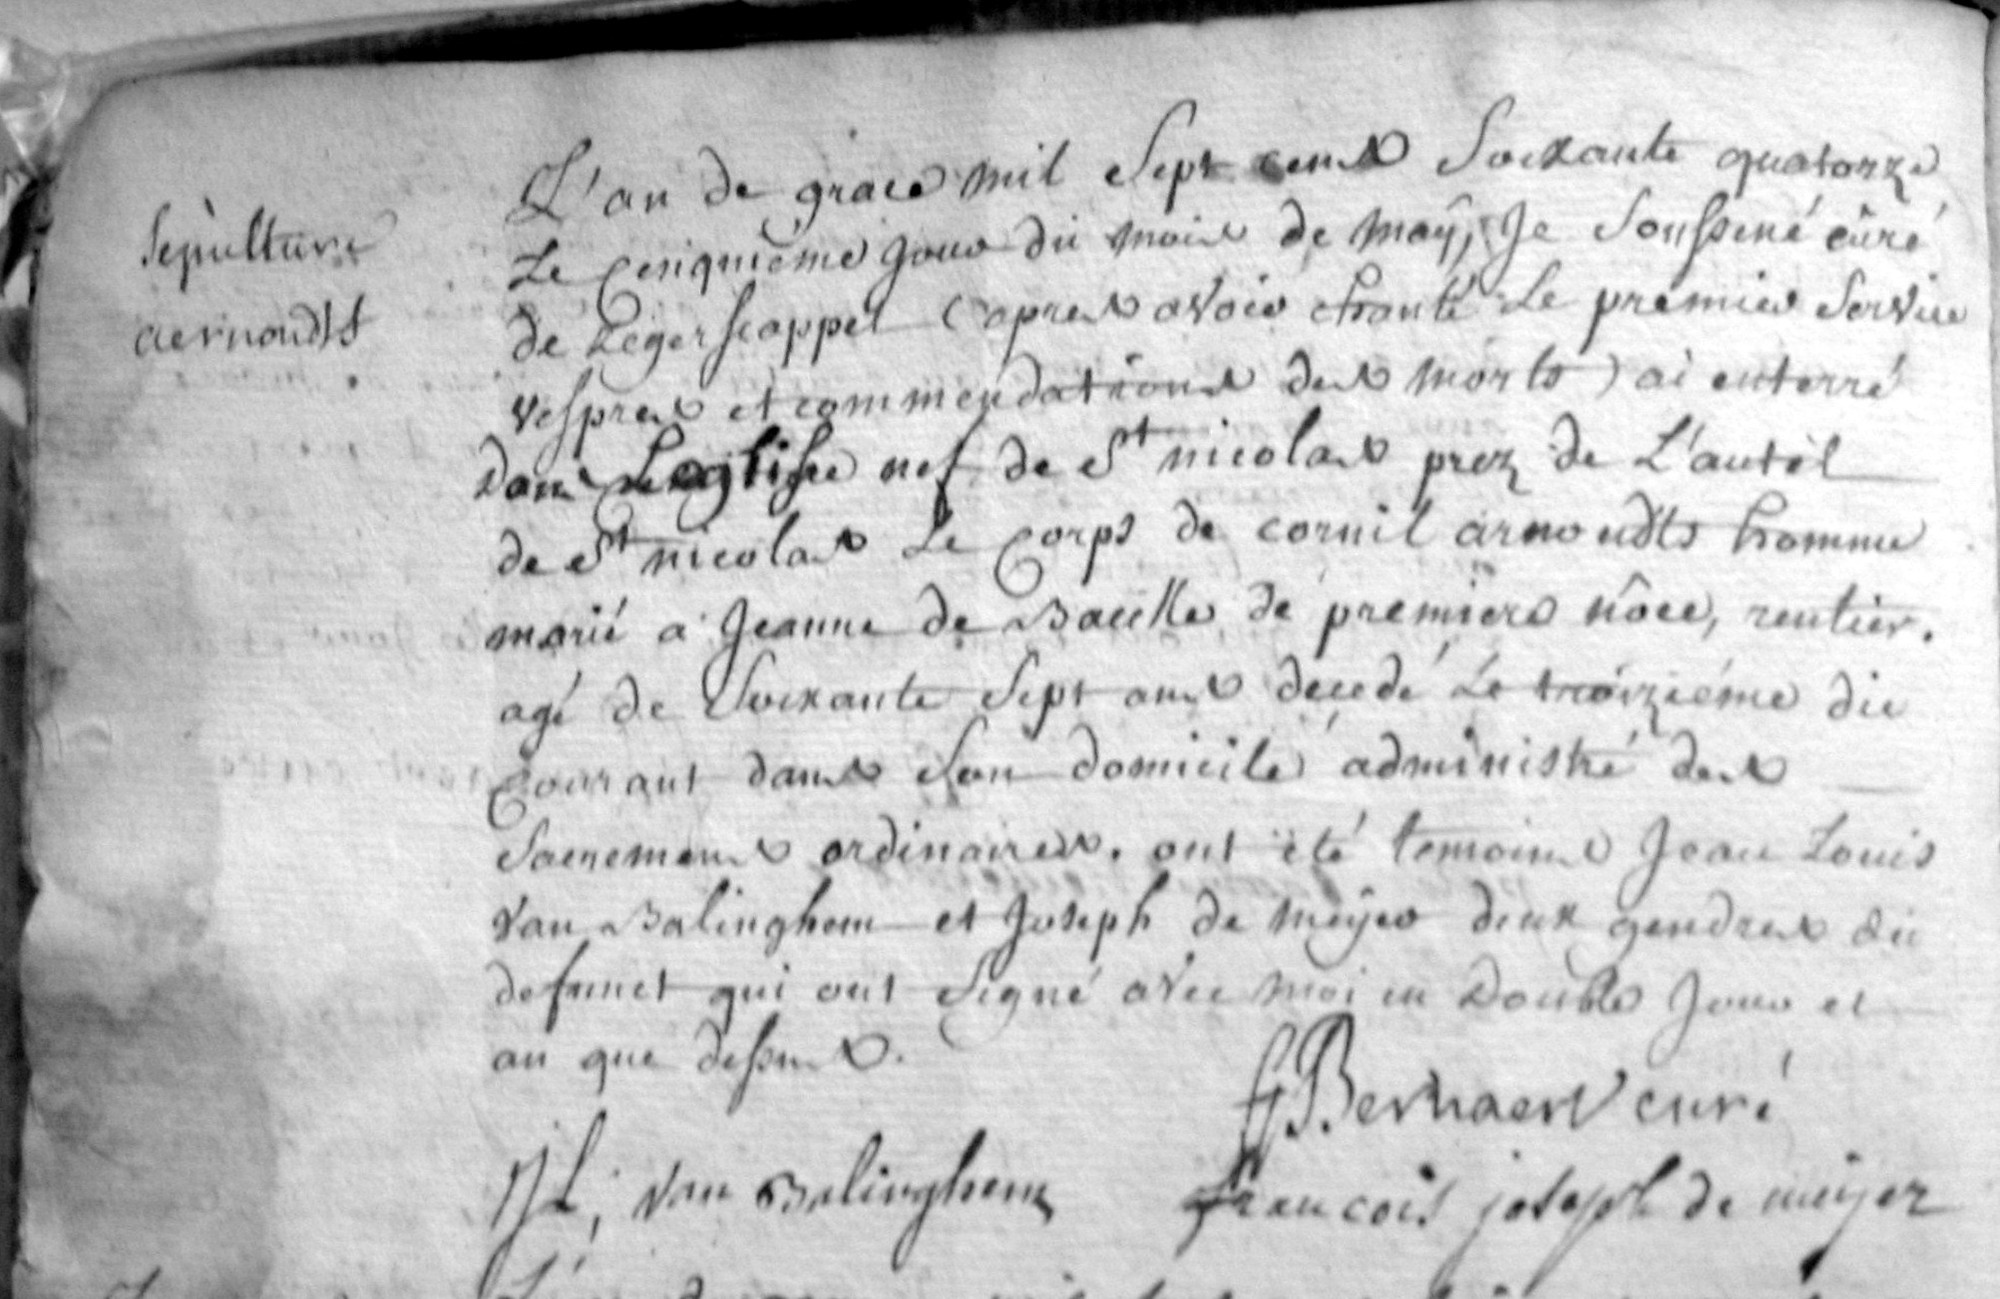 L'an de grace mil Sept cens Soixante quatorze
Sepulture
Le Cinquième jour du mois de maÿ, Je Soussiné curé
aernoudts
de Zegerscappel (apres avoir chanté Le premier Service
vespres et commendations des morts) ai enterré
dans L'eglise nef de St nicolas prez de L'autel
de St nicolas Le Corps de cornil arnoudts homme
marié a Jeanne de Baecke de premiere nôce, rentier.
agé de Soixante Sept ans decedé Le troizième du
Courant dans Son domicile administré des
Sacremens ordinaires. ont été temoins Jean Louis
van Balinghem et Joseph de meÿer deux gendres du
defunct qui ont Signé avec moi en Double Jour et
an que dessus.
Bernaert curé
JL, van Balinghem
francois joseph de meijer